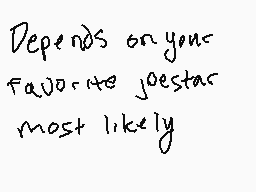 Depends on your
favorite joestar
most likely